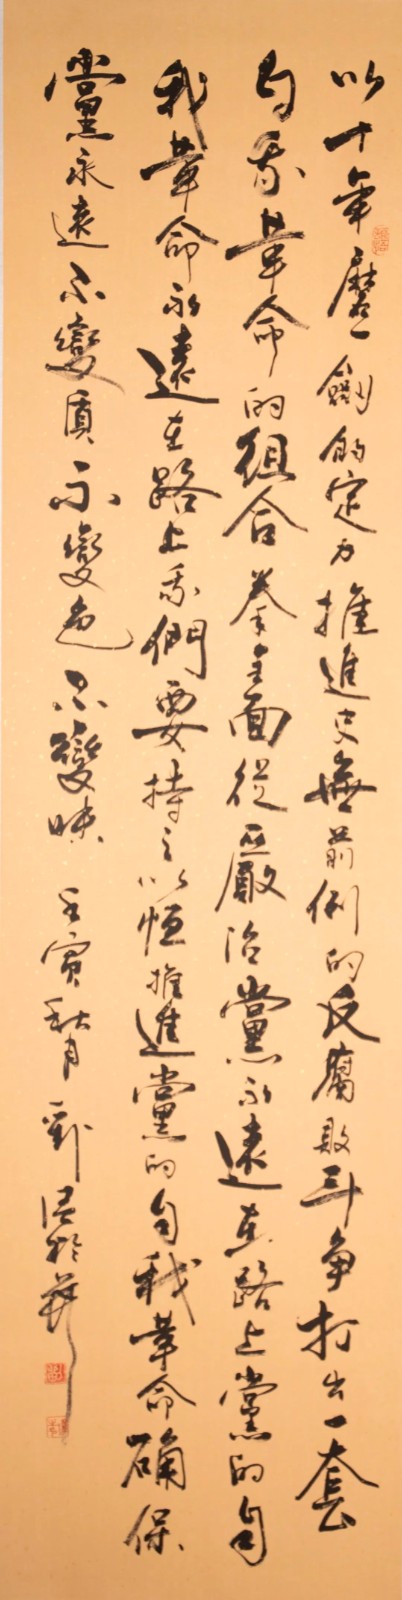 以十年磨一劍的定力推進史無前例的反腐敗斗争打出一套
自我革命的組合拳全面從嚴治黨永遠在路上黨的自
我革命永遠在路上我們要持之以恒推進黨的自我革命確保
黨永遠不變質不變色不變味 壬寅秋月 劉